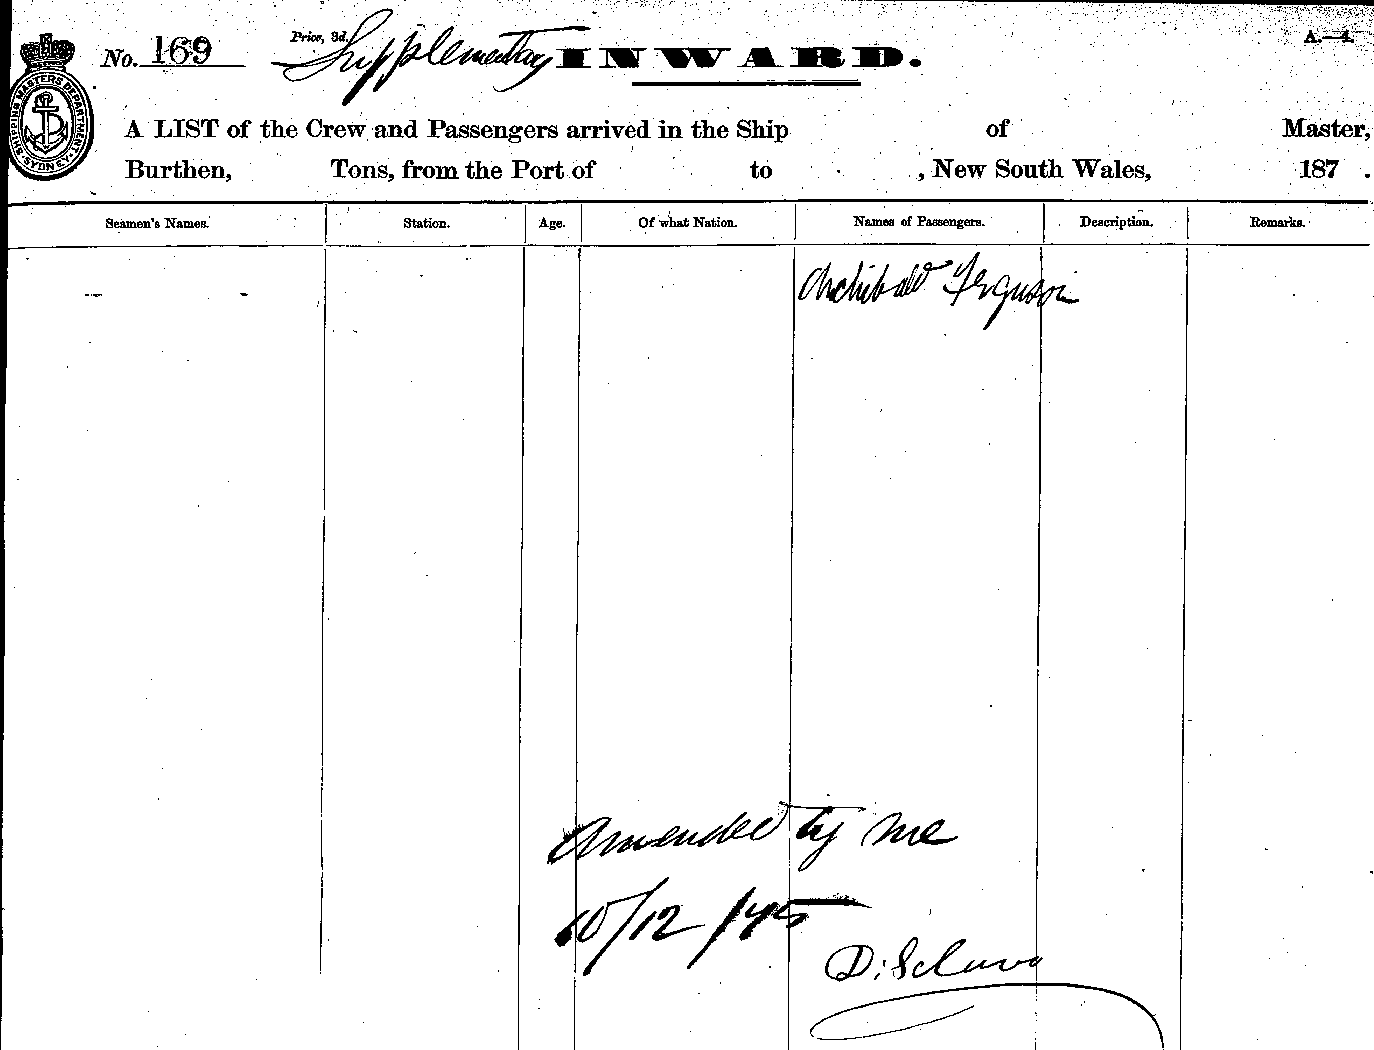 No. 169 Price, 3d. Supplementary INWARD. A.—4.
SHIPPING MASTERS DEPARTMENT SYDNEY
A LIST of the Crew and Passengers arrived in the Ship of Master,
Burthen, Tons, from the Port of to , New South Wales, 187 .
Seamen's Names. Station. Age. Of what Nation. Names of Passengers. Description. Remarks.
Archibald Ferguson
Amended by me
10/12/75
D.